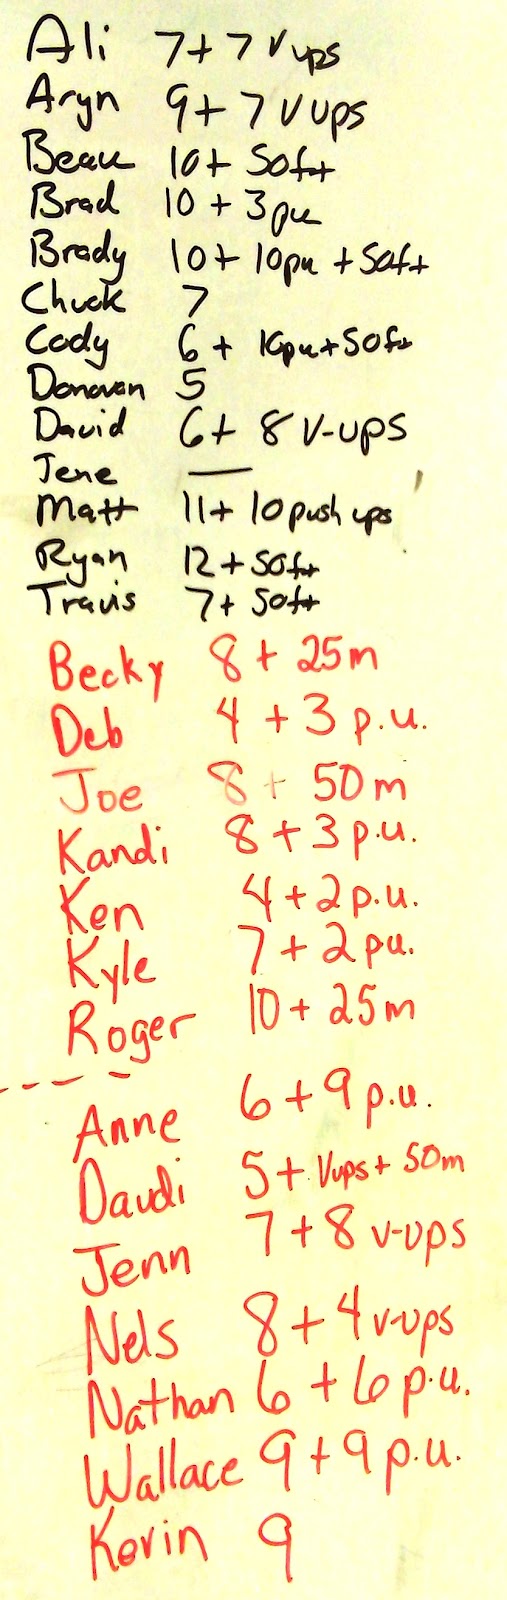 Ali 7 + 7 V ups
Aryn 9 + 7 V UPS
Beau 10 + 50ft
Brad 10 + 3pu
Brady 10 + 10pu + 50ft
Chuck 7
Cody 6 + 10pu + 50ft
Donovan 5
David 6 + 8 V-UPS
Jene —
Matt 11 + 10 push ups
Ryan 12 + 50ft
Travis 7 + 50ft
Becky 8 + 25m
Deb 4 + 3 p.u.
Joe 8 + 50m
Kandi 8 + 3 p.u.
Ken 4 + 2 p.u.
Kyle 7 + 2 pu.
Roger 10 + 25m
Anne 6 + 9 p.u.
Daudi 5 + Vups + 50m
Jenn 7 + 8 v-ups
Nels 8 + 4 v-ups
Nathan 6 + 6 p.u.
Wallace 9 + 9 p.u.
Kevin 9